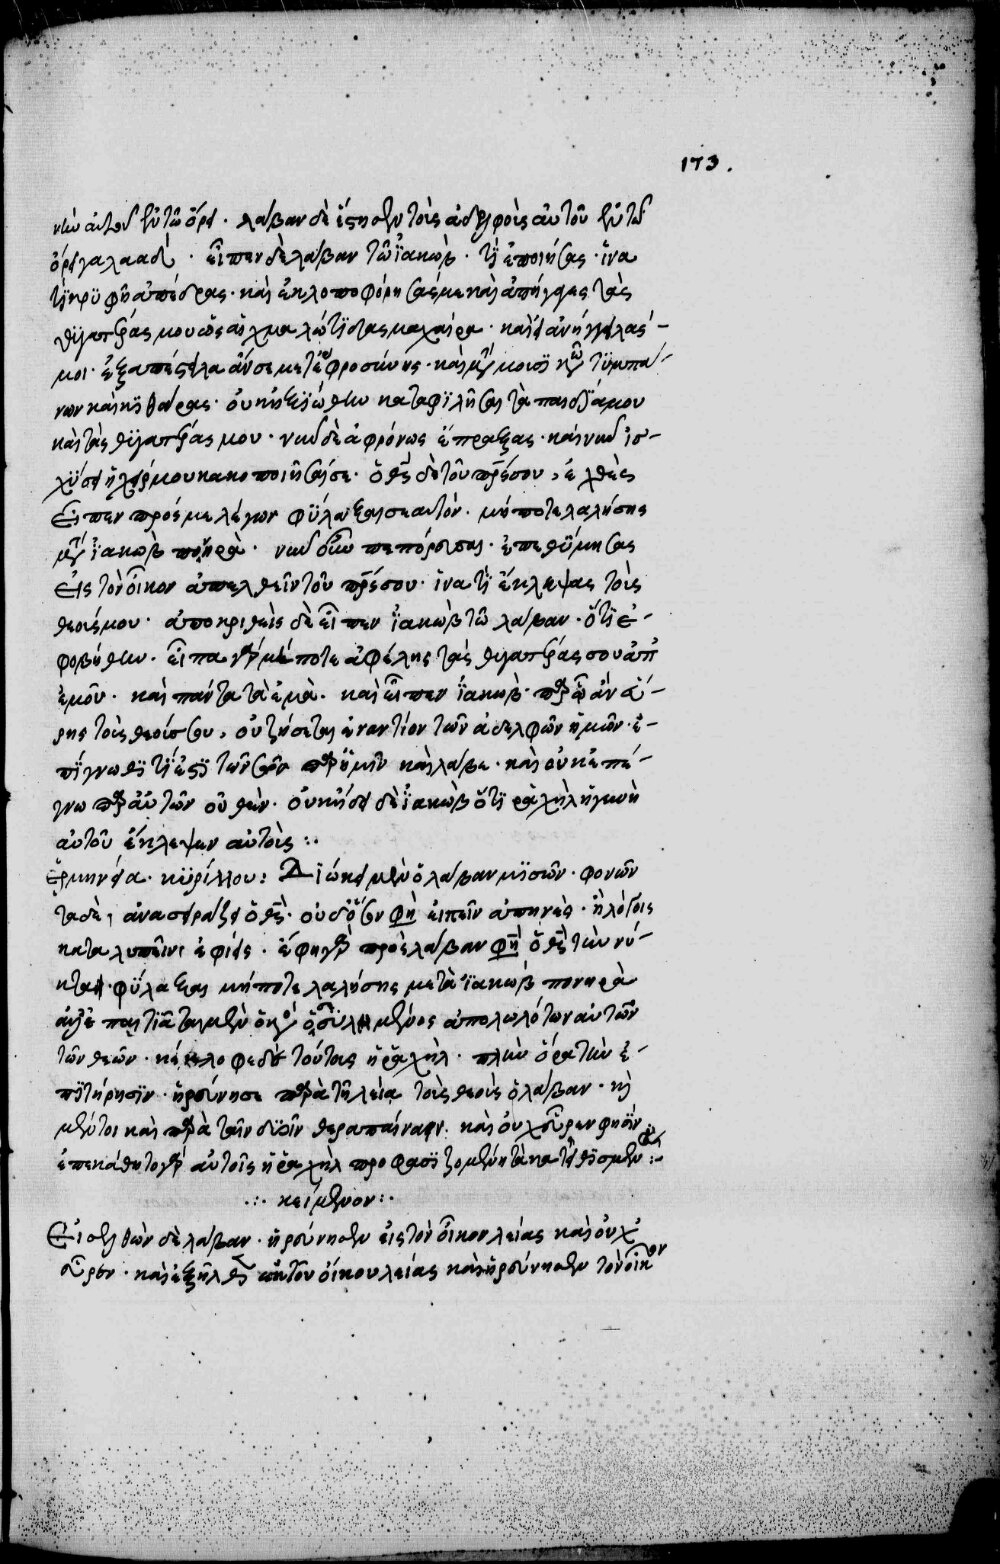 173.
νὴν αὐτοῦ ἐν τῶ ὄρει. λάβαν δὲ ἔστησεν τοὺς ἀδελφοὺς αὐτοῦ ἐν τῶ
ὄρει γαλαάδ. εἶπεν δὲ λάβαν τῶ ἰακώβ. τί ἐποίησας. ἵνα
τί κρυφῆ ἀπέδρας. καὶ ἐκλοποφόρησάς με καὶ ἀπήγαγες τὰς
θυγατέρας μου ὡς αἰχμαλώτιδας μαχαίρα. καὶ εἰ ἀνήγγειλάς
μοι. ἐξαπέστειλα ἄν σε μετ' εὐφροσύνης. καὶ μετὰ μουσικῶν τυμπά-
νων καὶ κιθάρας. οὐκ ἠξιώθην καταφιλῆσαι τὰ παιδία μου
καὶ τὰς θυγατέρας μου. νῦν δὲ ἀφρόνως ἔπραξας. καὶ νῦν ἰσ-
χύει ἡ χείρ μου κακοποιῆσαί σε. ὁ θεὸς δὲ τοῦ πρς σου, ἐχθὲς
εἶπεν πρός με λέγων φύλαξαι σεαυτὸν. μή ποτε λαλήσης
μετὰ ἰακὼβ πονηρὰ. νῦν οὖν πεπόρευσαι. ἐπεθύμησας
εἰς τὸν οἶκον ἀπελθεῖν τοῦ πρς σου. ἵνα τί ἔκλεψας τοὺς
θεούς μου. ἀποκριθεὶς δὲ εἶπεν ἰακὼβ τῶ λάβαν. ὅτι ἐ-
φοβήθην. εἶπα γὰρ μή ποτε ἀφέλης τὰς θυγατέρας σου ἀπ'
ἐμοῦ. καὶ πάντα τὰ ἐμὰ. καὶ εἶπεν ἰακὼβ. παρ' ᾧ ἂν εὕ-
ρης τοὺς θεούς σου, οὐ ζήσεται ἐναντίον τῶν ἀδελφῶν ἡμῶν. ἐ-
πίγνωθι τί ἐστι τῶν σῶν παρ' ἡμῖν καὶ λάβε. καὶ οὐκ ἐπέ-
γνω παρ' αὐτῶν οὐθὲν. οὐκ ἤδει δὲ ἰακὼβ ὅτι ῥαχὴλ ἡ γυνὴ
αὐτοῦ ἔκλεψεν αὐτοὺς :.
ἑρμηνεία. κυρίλλου: Διώκει μὲν ὁ λάβαν μισῶν. φονῶν
τα δὲ, ἀνασειράζει ὁ θεὸς. οὐδ' ὅσον φη εἰπεῖν ἀπηνὲς. ἢ λόγοις
καταλυπεῖν ἐφιεὶς. ἔφη γὰρ πρὸς λάβαν φη ὁ θεὸς τὴν νύ-
κτα. φύλαξαι μή ποτε λαλήσης μετὰ ἰακὼβ πονηρὰ
ἀπολωλότων αὐτῶν
τῶν θεῶν. κέκλοφε δὲ τούτους ἡ ῥαχὴλ. πλὴν ὁρατὴν ἐ-
πιτήρησιν. ἠρεύνησε παρὰ τῆ λεία τοὺς θεοὺς ὁ λάβαν. καὶ
μέντοι καὶ παρὰ ταῖν δυοῖν θεραπαίναιν. καὶ οὐχ εὗρεν φησίν
ἐπεκάθητο γὰρ αὐτοῖς ἡ ῥαχὴλ προφασιζομένη τὰ κατ' ἐθισμὸν :.
.:. κείμενον :.
Εἰσελθὼν δὲ λάβαν. ἠρεύνησεν εἰς τὸν οἶκον λείας καὶ οὐχ
εὗρεν. καὶ ἐξῆλθεν ἐκ τοῦ οἴκου λείας καὶ ἠρεύνησεν τὸν οἶκον